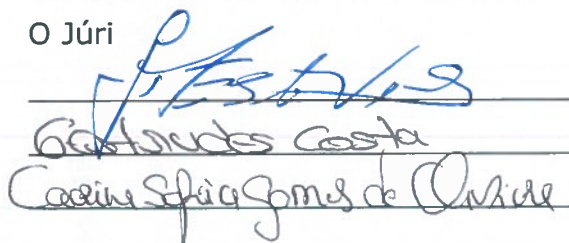 O Júri
Gertrudes Costa
Carina Sofia Gomes de Oliveira